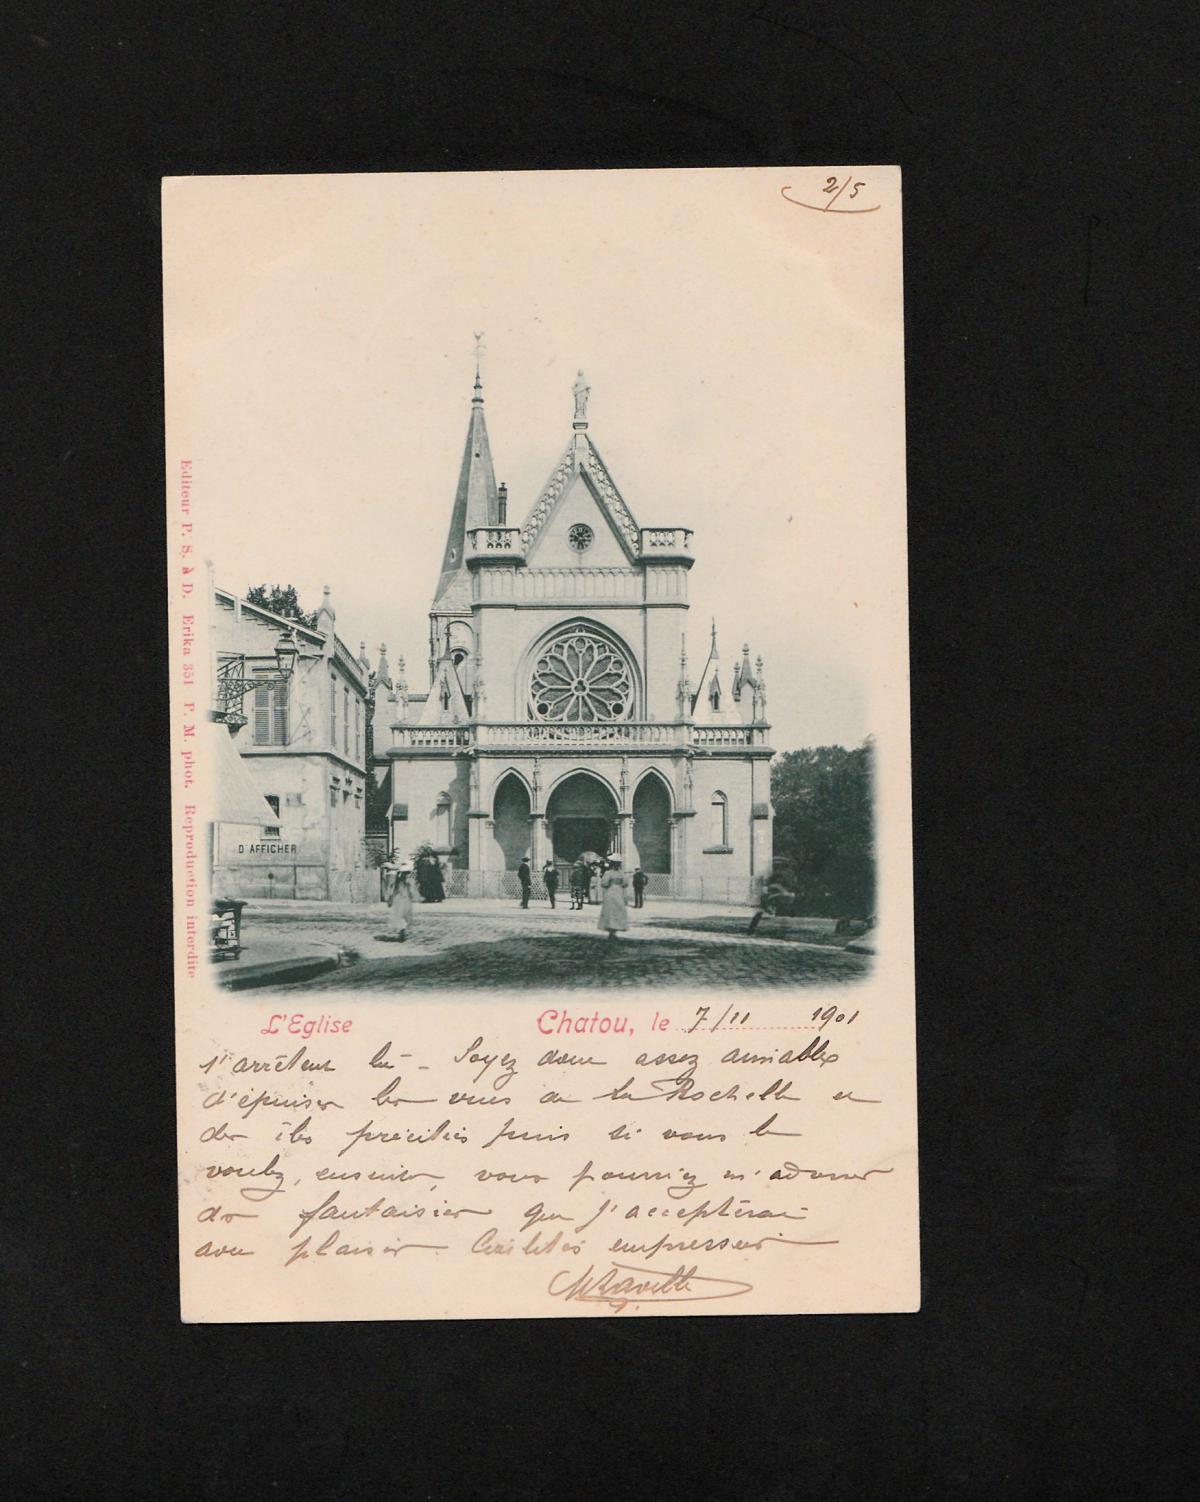 2/5
Editeur P. S. à D. Erika 351 P. M. phot. Reproduction interdite
D'AFFICHER
L'Eglise
Chatou, le 7/11 1901
s'arrêteur là - Soyez donc assez aimable
d'épuiser les vues de la Rochelle et
des îles précitées puis si vous le
voulez, ensuite, vous pourriez m'adresser
des fantaisies que j'accepterai
avec plaisir. Civilités empressées